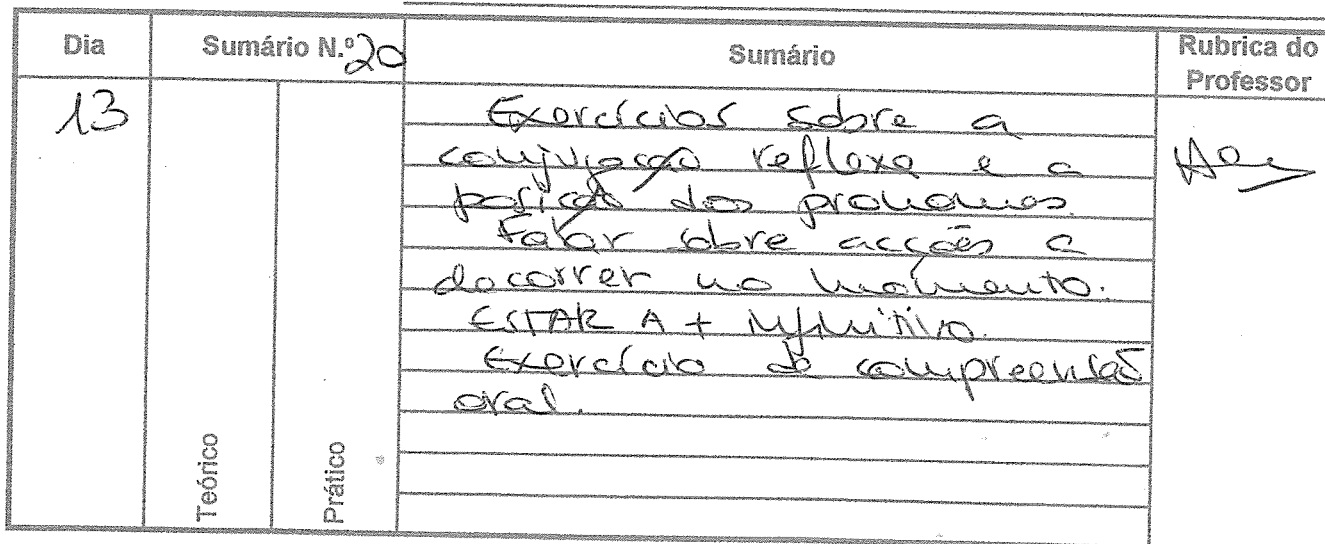 Dia Sumário N.º 20 Sumário Rubrica do Professor
13
Exercícios sobre a
conjugação reflexa e a
posição dos pronomes.
Falar sobre acções a
decorrer no momento.
ESTAR A + infinitivo.
Exercício de compreensão
oral.
Teórico Prático